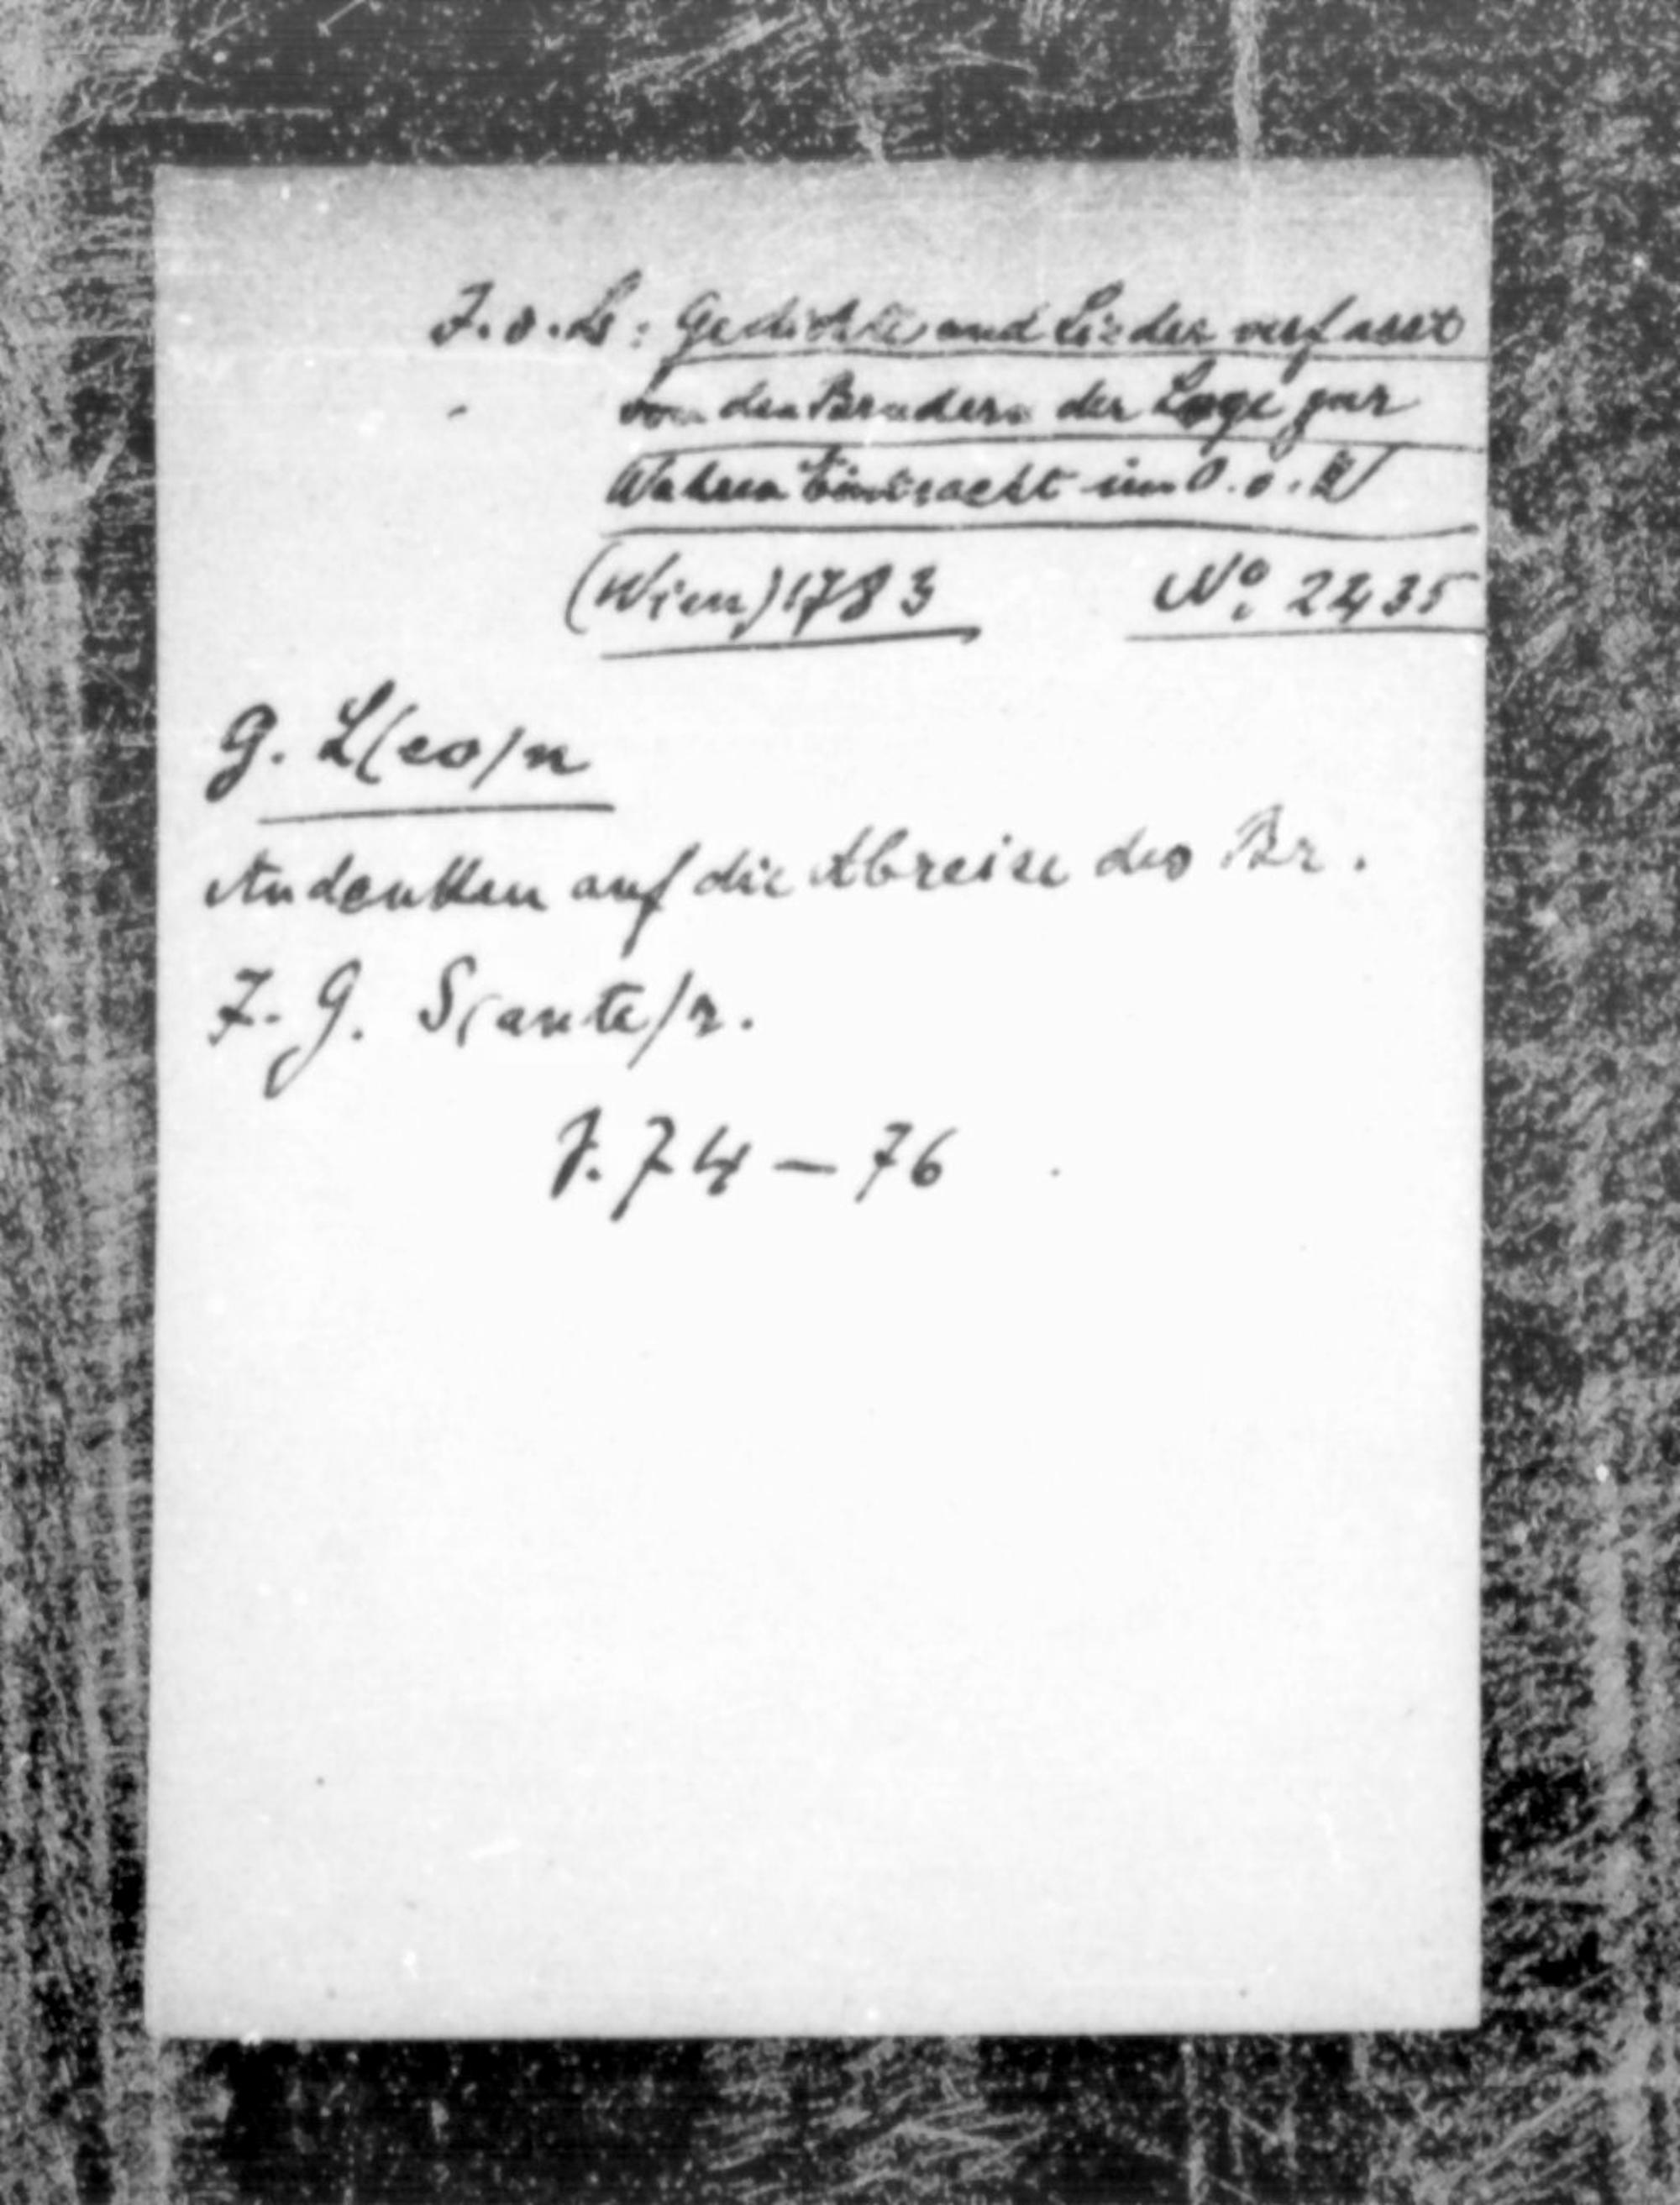 J. v. B: Gedichte und Lieder verfasst
von den Brudern der Loge zur
Wahren Eintracht im O. v. W
(Wien) 1783 Nº 2435
G. L(eo)n
Andenken auf die Abreise des Br.
J. G. S(aute)r.
S. 74 — 76